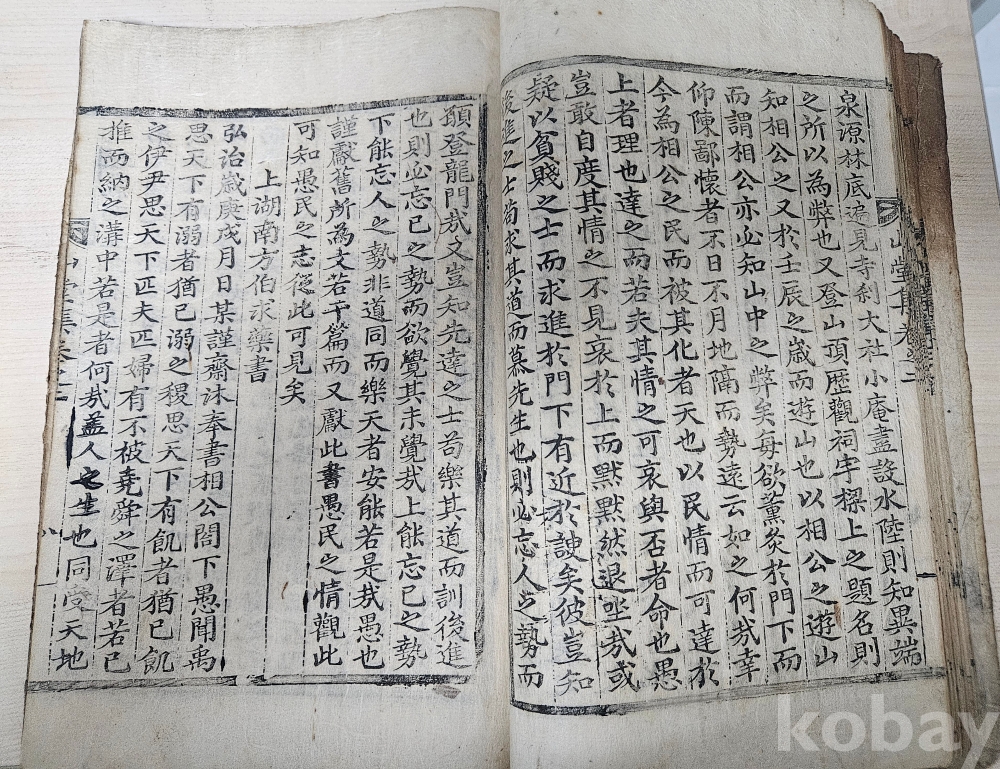 山堂集卷之二
泉源林底遍見寺刹大社小庵盡設水陸則知異端
之所以為弊也又登山頂歷觀祠宇樑上之題名則
知相公之又於壬辰之歲而遊山也以相公之遊山
而謂相公亦必知山中之弊矣每欲薰灸於門下而
仰陳鄙懷者不日不月地隔而勢遠云如之何哉幸
今為相公之民而被其化者天也以民情而可達於
上者理也達之而若夫其情之可哀與否者命也愚
豈敢自度其情之不見哀於上而默默然退坐哉或
疑以貧賤之士而求進於門下有近於諛矣彼豈知
後進之士苟求其道而慕先生也則必忘人之勢而
願登龍門哉又豈知先達之士苟樂其道而訓後進
也則必忘己之勢而欲覺其未覺哉上能忘己之勢
下能忘人之勢非道同而樂天者安能若是哉愚也
謹獻舊所為文若干篇而又獻此書愚民之情觀此
可知愚民之志從此可見矣
上湖南方伯求藥書
弘治歲庚戌月日某謹齋沐奉書相公閤下愚聞禹
思天下有溺者猶己溺之稷思天下有飢者猶己飢
之伊尹思天下匹夫匹婦有不被堯舜之澤者若己
推而納之溝中若是者何哉蓋人之生也同受天地
山堂集卷之二
八
kobay